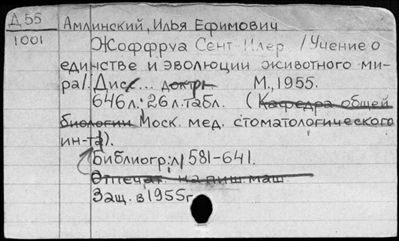 Д 55 Амлинский, Илья Ефимович
1001 Жоффруа Сент-Илер /Учение о
единстве и эволюции животного ми-
ра/. Дисс... докт. М., 1955.
646 л.; 26 л. табл. (Кафедра общей
биологии Моск. мед. стоматологического
ин-та).
Библиогр.: л. 581-641.
Отпечат. на пиш. маш.
Защ. в 1955 г.